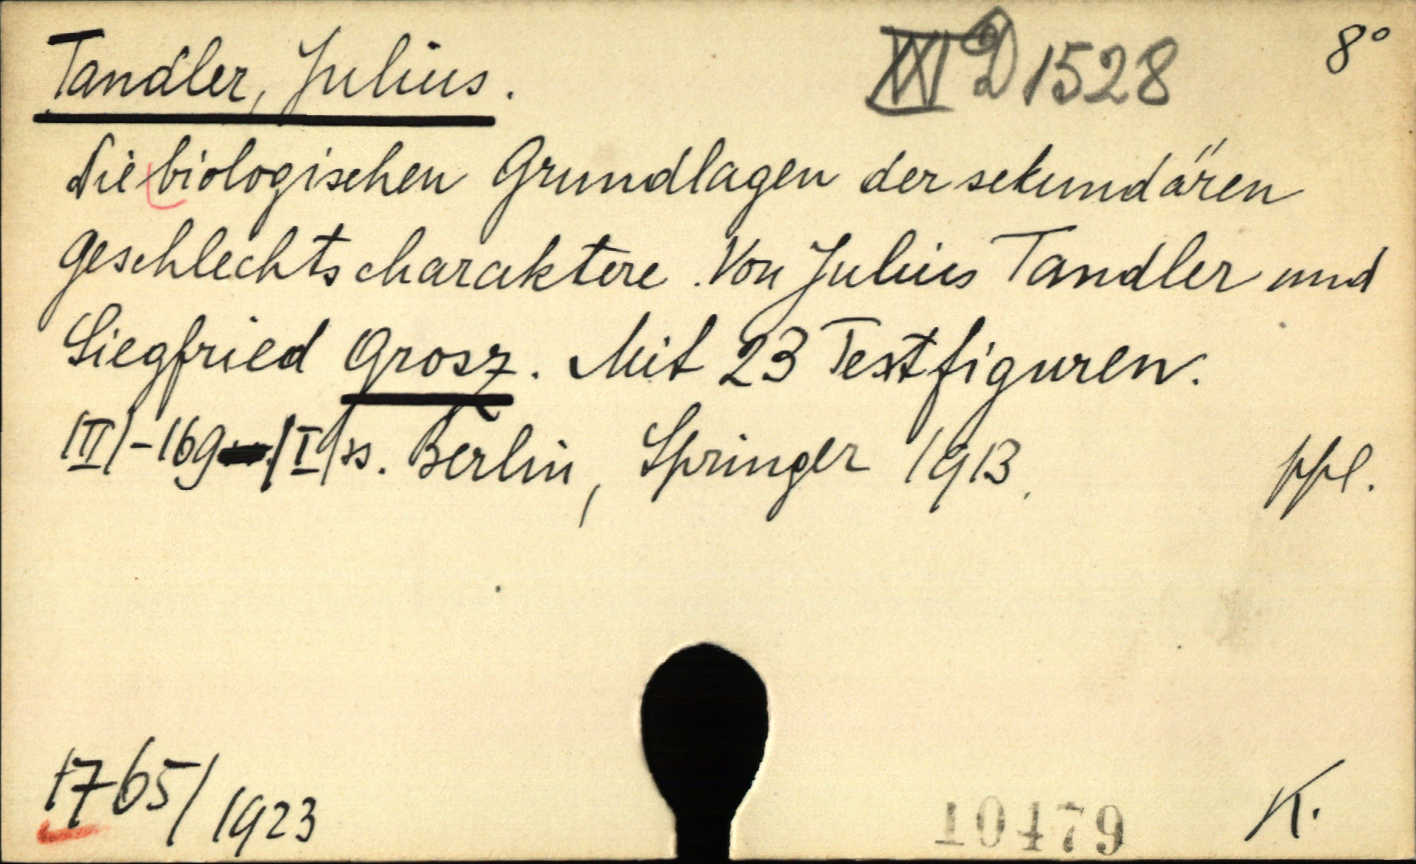 Tandler, Julius.
XXI D 1528
8°
Die biologischen Grundlagen der sekundären
Geschlechtscharaktere. Von Julius Tandler und
Siegfried Grosz. Mit 23 Textfiguren.
/II/-169 /I/ ss. Berlin, Springer 1913.
ppl.
1765/1923
10479
K.